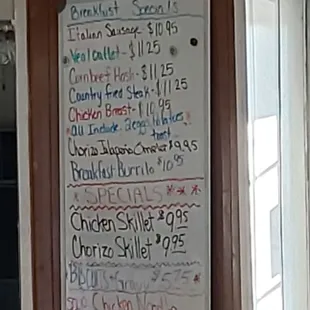 Breakfast Specials
Italian Sausage $10.95
Veal Cutlet - $11.25
Cornbeef Hash - $11.25
Country fried Steak - $11.25
Chicken Breast - $10.95
*All Include 2 eggs, potatoes
toast
Chorizo Jalapeño Omelet $9.95
Breakfast Burrito $10.95
* SPECIALS ***
Chicken Skillet $9.95
Chorizo Skillet $9.95
Biscuits & Gravy $5.75
Chicken Noodle